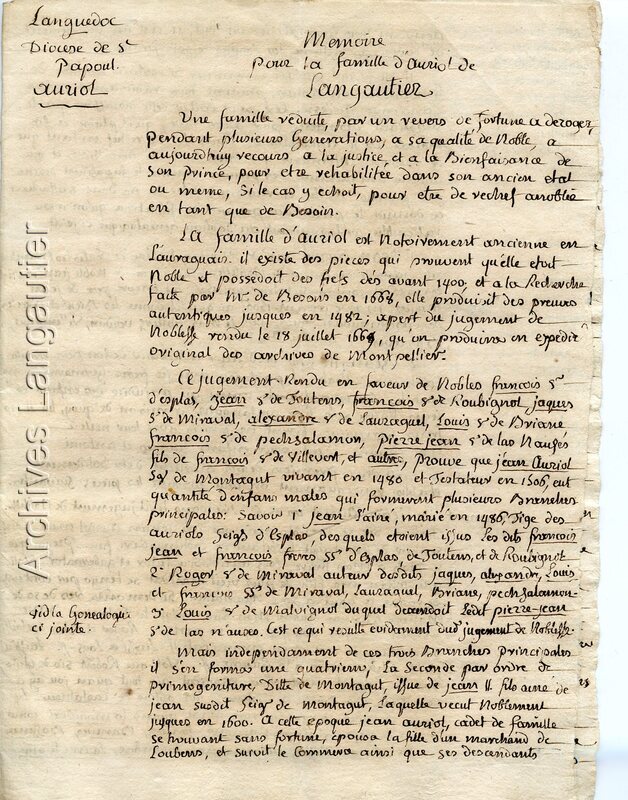 Languedoc
Diocese de St
Papoul.
auriol
Memoire
pour la famille d'auriol de
Langautier
Une famille reduite, par un revers de fortune a deroger,
pendant plusieurs Generations, a sa qualité de Noble, a
aujourdhuy recours a la justice, et a la Bienfaisance de
son prince, pour etre rehabilitée dans son ancien etat
ou meme, si le cas y echoit, pour etre de rechef anoblie
en tant que de Besoin.
LA famille d'auriol est Notoirement ancienne en
Lauraguais. il existe des pieces qui prouvent qu'elle etoit
Noble et possédoit des fiefs dés avant 1400. et a la Recherche
faite par Mr. de Besons en 1668, elle produisit des preuves
autentiques jusques en 1482; apert du jugement de
Noblesse rendu le 18 juillet 1669, qu'on produira en expedion
original des archives de Montpellier.
Ce jugement Rendu en faveur de Nobles françois Sr
d'esplas, jean Sr de Toutens, françois Sr de Roubignol jaques
Sr de Miraval, alexandre Sr de Lauraguel, Louis Sr de Briane
françois Sr de pechsalamon, pierre jean Sr de las Nauses
fils de françois Sr de Villevert, et autres, prouve que jean Auriol
Sgr de Montagut vivant en 1480 et Testateur en 1506, eut
quantité d'enfans males qui formerent plusieurs Branches
principales: Savoir 1º jean L'ainé, marié en 1486, Tige des
auriols Seigrs d'Esplas, desquels etoient issus Les dits françois
jean et françois freres SSrs d'Esplas, de Toutens, et de Roubignol
2º Roger Sr de Miraval auteur desdits jaques, alexandre, Louis
et françois SSrs de Miraval, Lauraguel, Briane, pechsalamon.
3º Louis Sr de Malvignol duquel decendoit Ledit pierre-jean
Sr de las nauses. C'est ce qui resulte evidament dud. jugement de Noblesse
vid. la Genealogie
ci jointe.
Mais independament de ces trois Branches principales
il s'en forma une quatrieme, La Seconde par ordre de
primogeniture, Ditte de Montagut, issue de jean II fils ainé de
jean susdit Seigr de Montagut, Laquelle vecut Noblement
jusques en 1600. A cette epoque jean auriol, cadet de famille
se trouvant sans fortune, epousa la fille d'un marchand de
Loubens, et suivit le Commerce ainsi que ses descendants
Archives Langautier